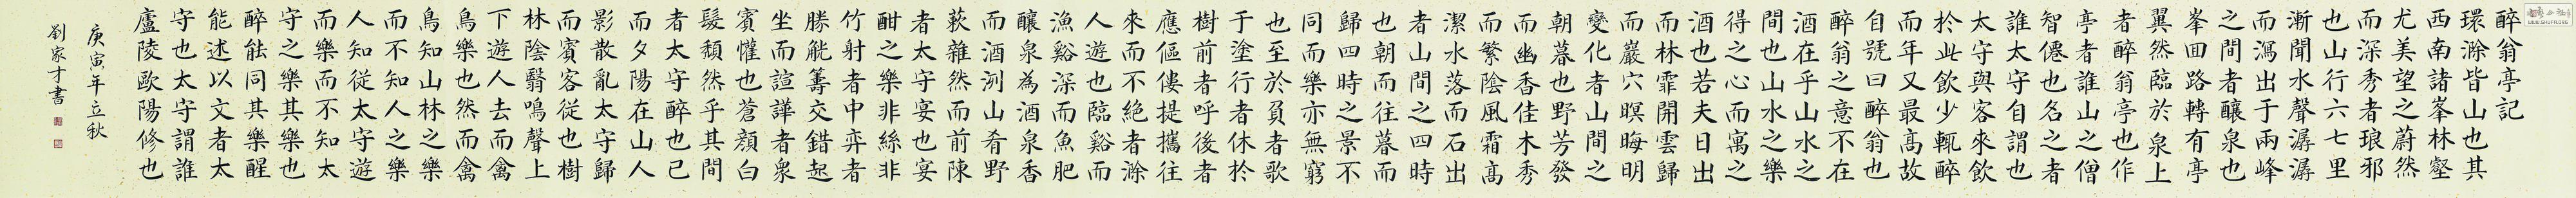 醉翁亭記
環滁皆山也其
西南諸峯林壑
尤美望之蔚然
而深秀者琅邪
也山行六七里
漸聞水聲潺潺
而瀉出于兩峰
之間者釀泉也
峯回路轉有亭
翼然臨於泉上
者醉翁亭也作
亭者誰山之僧
智僊也名之者
誰太守自謂也
太守與客來飲
於此飲少輒醉
而年又最高故
自號曰醉翁也
醉翁之意不在
酒在乎山水之
間也山水之樂
得之心而寓之
酒也若夫日出
而林霏開雲歸
而巖穴暝晦明
變化者山間之
朝暮也野芳發
而幽香佳木秀
而繁陰風霜高
潔水落而石出
者山間之四時
也朝而往暮而
歸四時之景不
同而樂亦無窮
也至於負者歌
于塗行者休於
樹前者呼後者
應傴僂提攜往
來而不絕者滁
人遊也臨谿而
漁谿深而魚肥
釀泉為酒泉香
而酒洌山肴野
蔌雜然而前陳
者太守宴也宴
酣之樂非絲非
竹射者中弈者
勝觥籌交錯起
坐而諠譁者眾
賓懽也蒼顏白
髮頹然乎其間
者太守醉也已
而夕陽在山人
影散亂太守歸
而賓客從也樹
林陰翳鳴聲上
下遊人去而禽
鳥樂也然而禽
鳥知山林之樂
而不知人之樂
人知從太守遊
而樂而不知太
守之樂其樂也
醉能同其樂醒
能述以文者太
守也太守謂誰
廬陵歐陽修也
庚寅年立秋
劉家才書